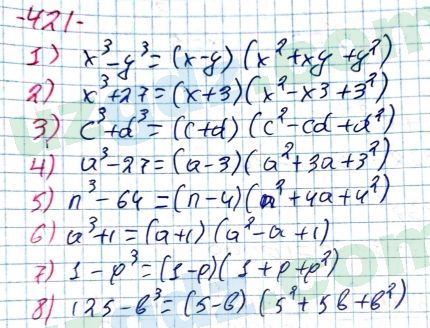 -421-
1) x³-y³=(x-y)(x²+xy+y²)
2) x³+27=(x+3)(x²-x3+3²)
3) c³+d³=(c+d)(c²-cd+d²)
4) a³-27=(a-3)(a²+3a+3²)
5) n³-64=(n-4)(n²+4a+4²)
6) a³+1=(a+1)(a²-a+1)
7) 1-p³=(1-p)(1+p+p²)
8) 125-b³=(5-b)(5²+5b+b²)